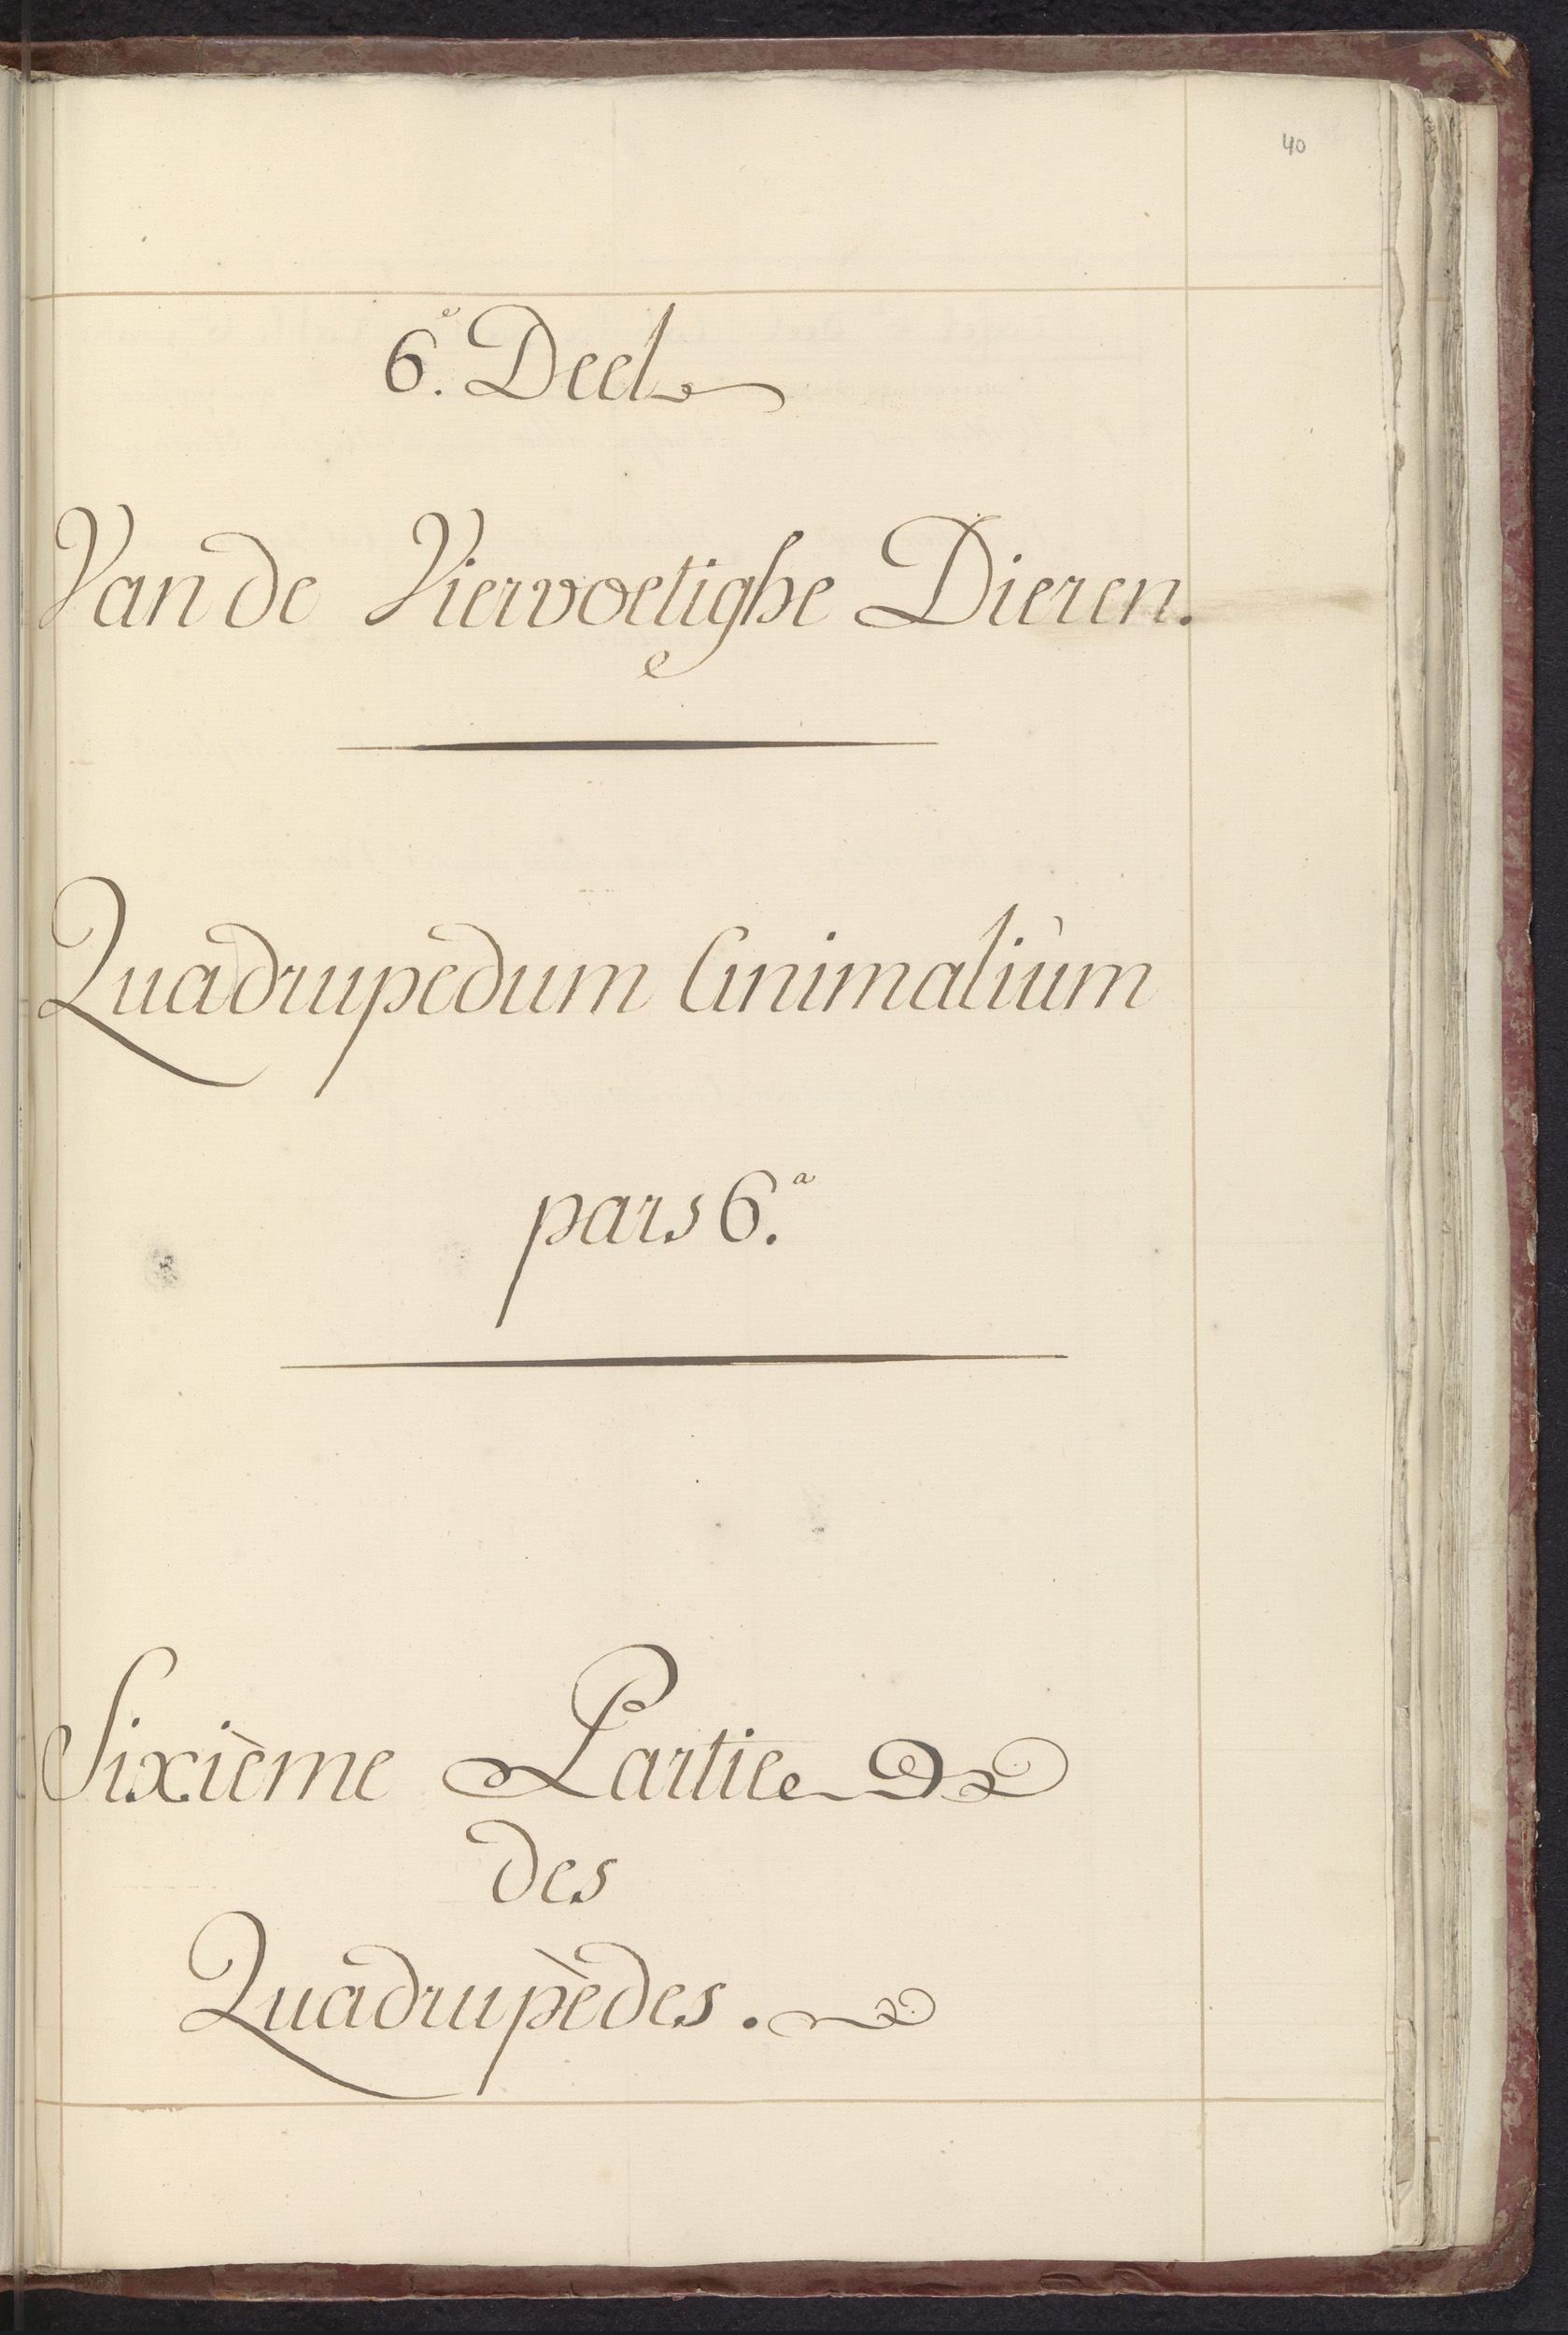 40
6.e Deel
Van de Viervoetighe Dieren.
Quadrupedum Animaliùm
pars 6.a
Sixième Partie
des
Quadrupèdes.